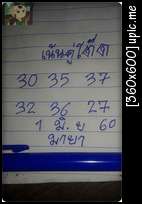 เน้นคู่โต๊ด
30 35 37
32 36 27
1 มิ.ย 60
มายา
[360x600] upic.me